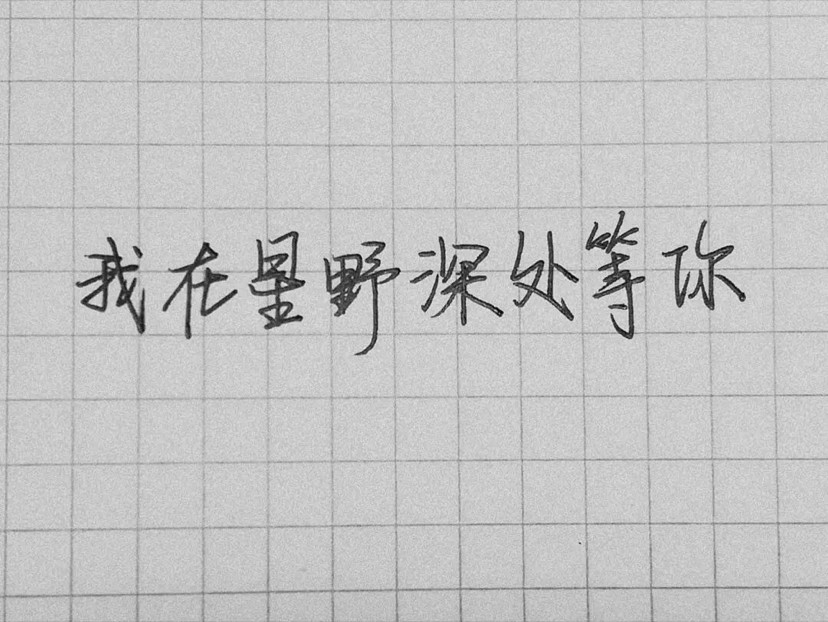 我在星野深处等你